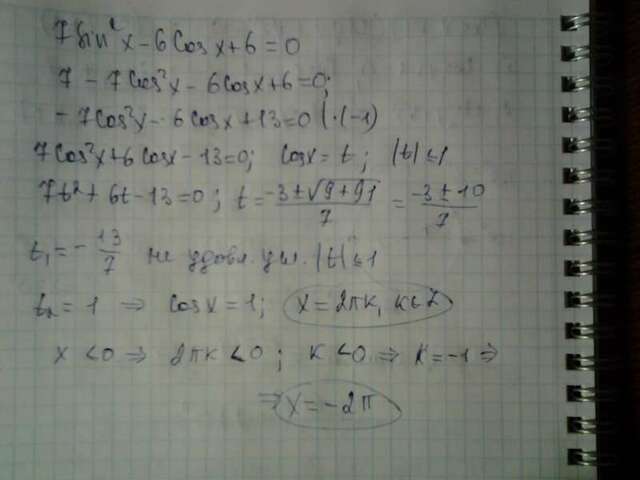 7 sin²x - 6 cos x + 6 = 0
7 - 7cos²x - 6cos x + 6 = 0;
- 7cos²x - 6cos x + 13 = 0 | · (-1)
7cos²x + 6cos x - 13 = 0; cos x = t; |t| ≤ 1
7t² + 6t - 13 = 0; t = (-3 ± √(9 + 91))/7 = (-3 ± 10)/7
t₁ = - 13/7 не удовл. усл. |t| ≤ 1
t₂ = 1 ⇒ cos x = 1; x = 2πk, k ∈ Z
x < 0 ⇒ 2πk < 0; k < 0 ⇒ k = -1 ⇒
⇒ x = -2π